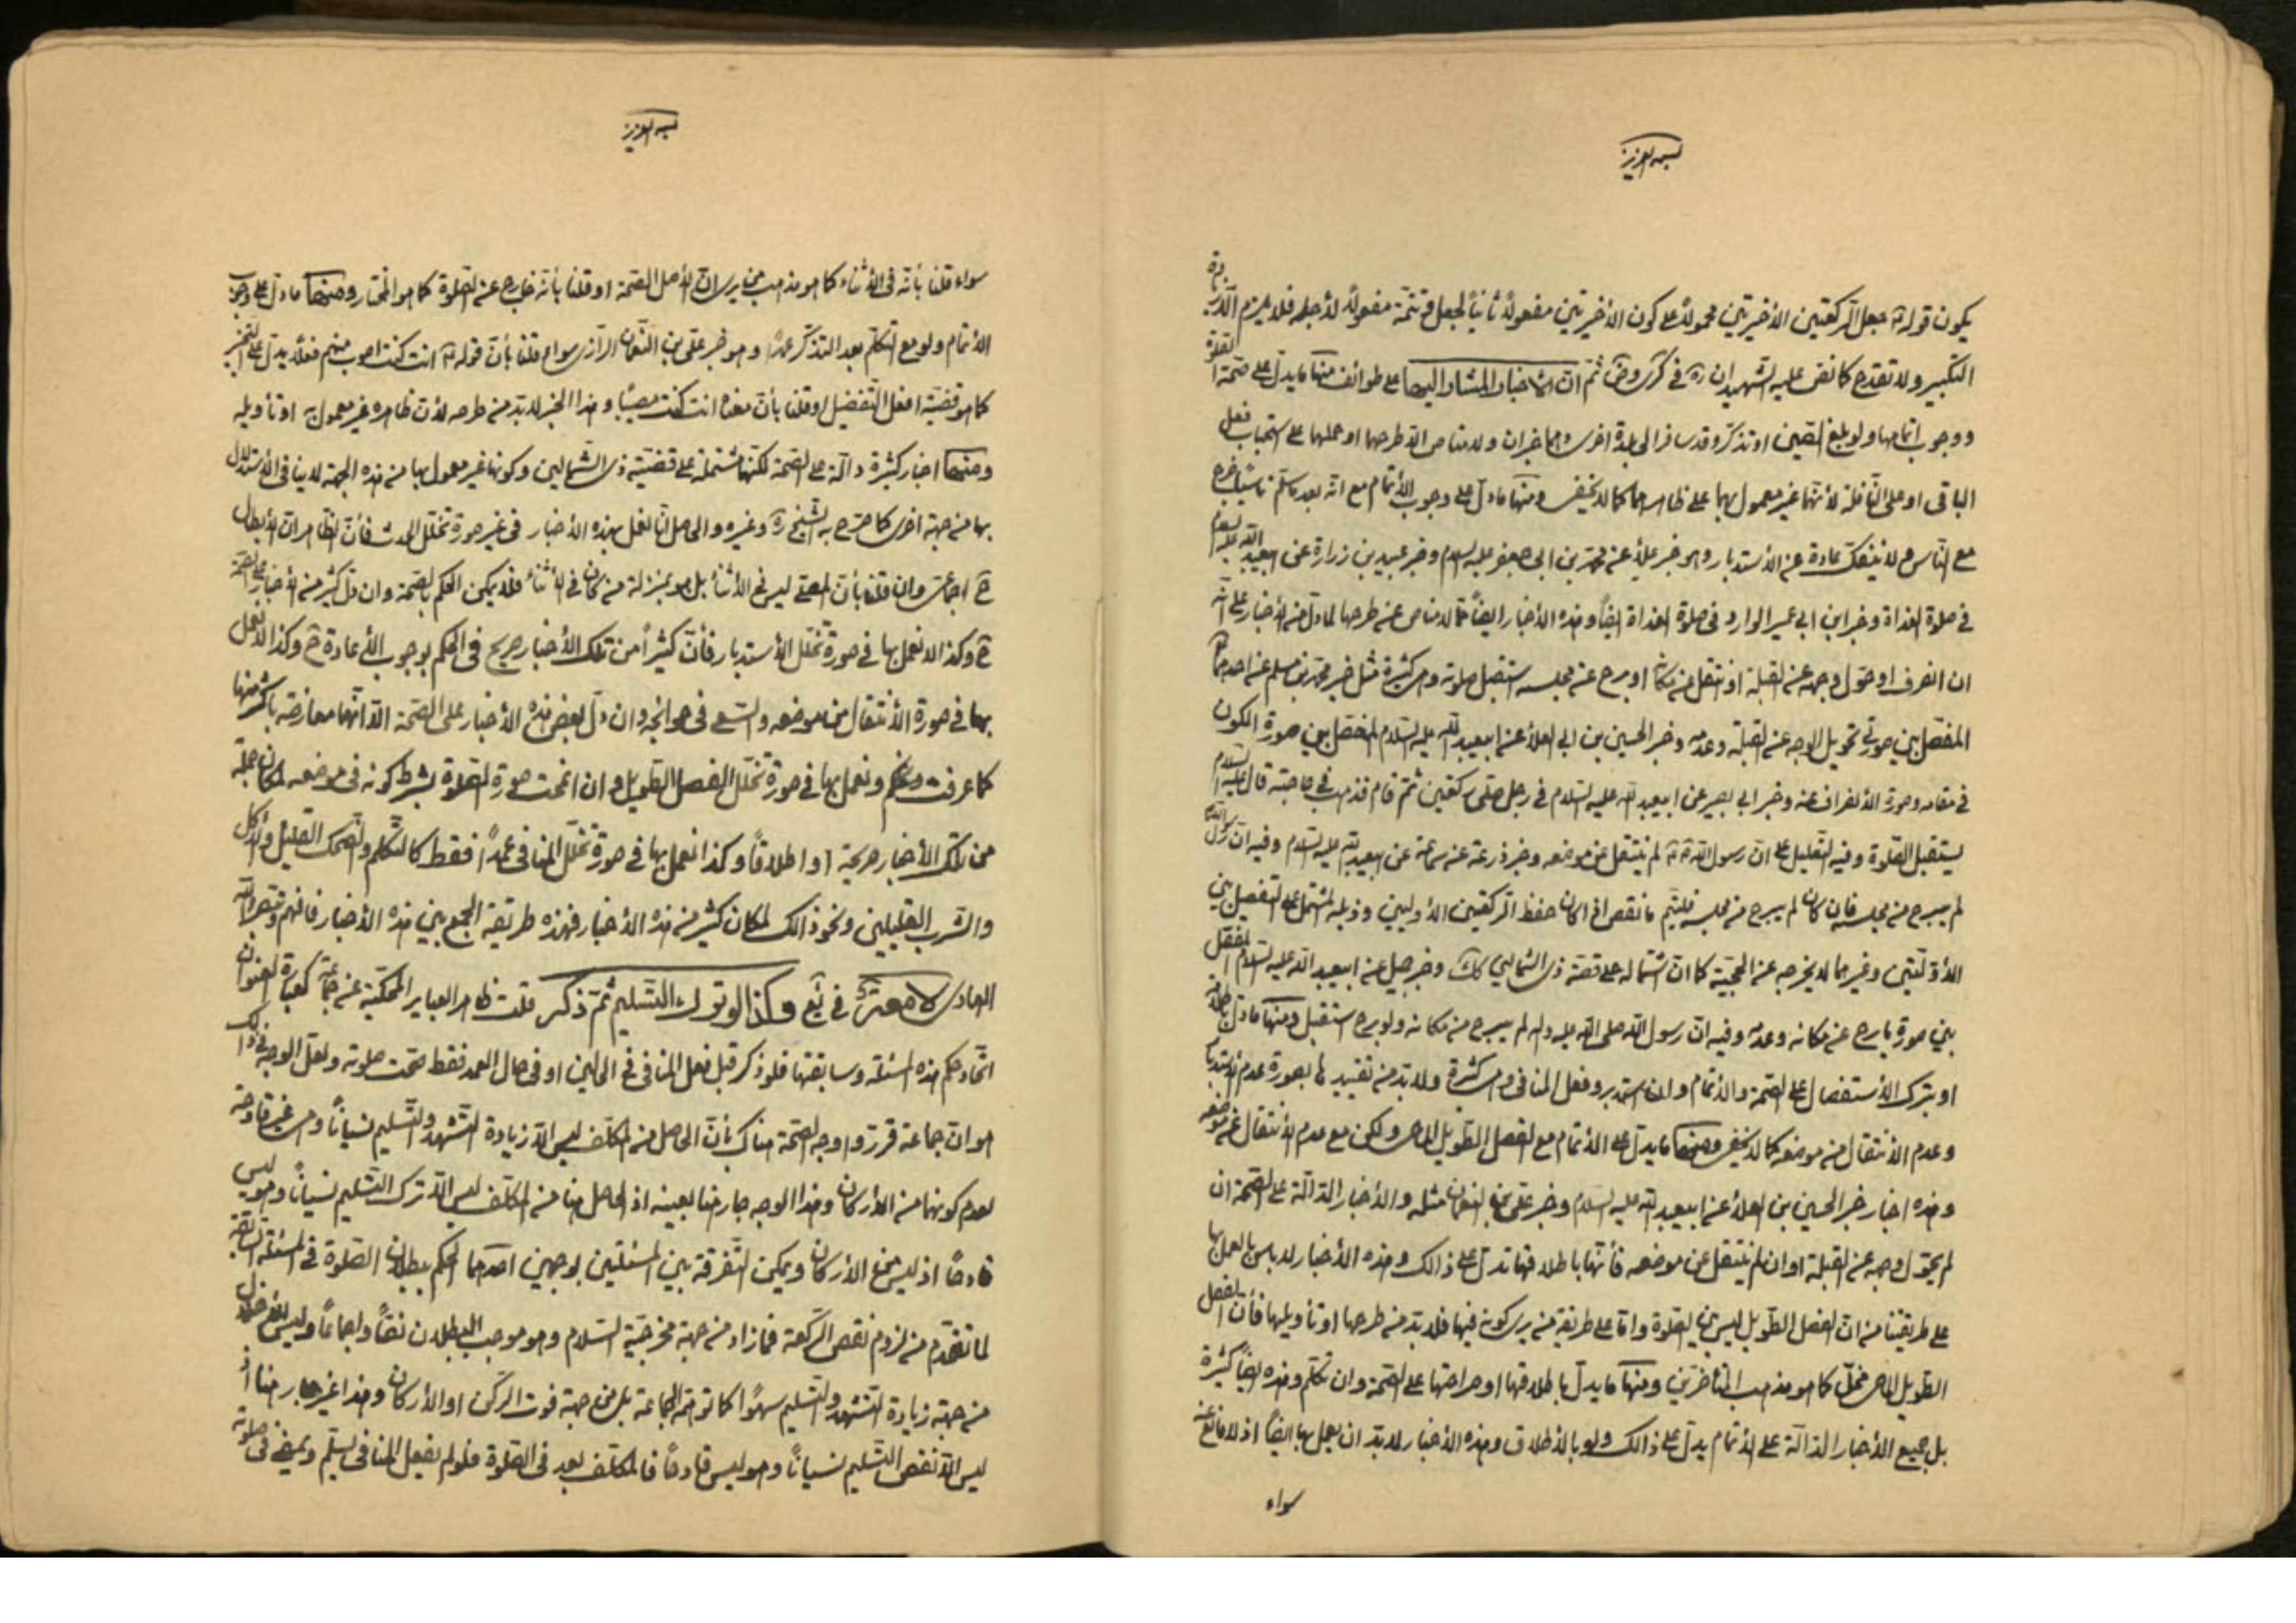 بسمه العزيز
يكون قوله جعل الركعتين الأخيرتين محمولا على كون الأخيرتين مفعولاً ثانياً لجعل فتتمة مفعولاً لأجله فلا يلزم
التكبير ولا تقدح كما نص عليه الشهيدان ره في كرى وض ثم ان الأخبار المشار اليها على طوائف منها ما يدل على صحة الصلوة
ووجوب اتمامها ولو بلغ الصين او تذكر وقد سافر الى بلدة اخرى وهما خبران ولا مناص الا طرحهما او حملهما على استحباب فعل
الباقى او على النافلة لأنهما غير معمول بهما على ظاهرهما كما لا يخفى ومنها ما دل على وجوب الأتمام مع انه بعد ما سلم ناسياً خرج
مع الناس لا ينفك عادة عن الأستدبار وهو خبر علاء عن محمد بن ابى جعفر عليه السلام وخبر عبيد بن زرارة عن ابيعبد الله عليه السلام
في صلوة الغداة وخبر ابن ابي عمير الوارد في صلوة الغداة ايضاً وهذه الأخبار ايضاً مما لا مناص عن طرحها لما دل من الأخبار على انه
ان انصرف او حول وجهه عن القبلة او انتقل من مكانه او برح عن مجلسه استقبل صلوته وهى كثيرة مثل خبر محمد بن مسلم عن احدهما
المفصل بين صورتى تحويل الوجه عن القبلة وعدمه وخبر الحسين بن ابى العلاء عن ابيعبد الله عليه السلام المفصل بين صورة الكون
في مقامه وصورة الأنصراف عنه وخبر ابي بصير عن ابيعبد الله عليه السلام في رجل صلى ركعتين ثم قام فذهب في حاجته قال عليه السلام
يستقبل الصلوة وفيه التعليل على ان رسول الله لم ينتقل عن موضعه وخبر زرعة عن سماعة عن ابيعبد الله عليه السلام وفيه ان رسول الله
لم يبرح من مجلسه فان كان لم يبرح من مجلسه فليتم ما نقص اذا كان حفظ الركعتين الأوليين وذيله المشتمل على التفصيل بين
الأوليتين وغيرهما لا يخرجه عن الحجية كما ان اشتماله على قصة ذى الشمالين كك وخبر جميل عن ابيعبد الله عليه السلام المفصل
بين صورة ما برح عن مكانه وعدمه وفيه ان رسول الله صلى الله عليه واله لم يبرح من مكانه ولو برح استقبل ومنها ما دل
او بترك الأستفصال على الصحة والأتمام وان استدبر وفعل المنافى وهى كثيرة ولا بد من تقييدها بصورة عدم الأستدبار
وعدم الأنتقال من موضعه كما لا يخفى ومنها ما يدل على الأتمام مع الفصل الطويل الماحى ولكن مع عدم الأنتقال عن موضعه
وهذه اخبار خبر الحسين بن العلاء عن ابيعبد الله عليه السلام وخبر على بن النعمان مثله والأخبار الدالة على الصحة ان
لم يحول وجهه عن القبلة او ان لم ينتقل عن موضعه فأنها باطلاقها تدل على ذالك وهذه الأخبار لا بأس بالعمل بها
على طريقتنا من ان الفصل الطويل ليس بين الصلوة واما على طريقة من يرى كونه فيها فلا بد من طرحها او تأويلها فأن الفصل
الطويل الماحى مخل كما هو مذهب المتأخرين ومنها ما يدل باطلاقها او صراحتها على الصحة وان تكلم وهذه ايضاً كثيرة
بل جميع الأخبار الدالة على الأتمام يدل على ذالك ولو بالأطلاق وهذه الأخبار لا بد ان يعمل بها ايضاً اذ لا مانع عنه
سواء
بسمه العزيز
سواء قلنا بأنه في الأثناء كما هو مذهب من يرى ان الأصل الصحة او قلنا بأنه خارج عن الصلوة كما هو المختار ومنها ما دل على وجوب
الأتمام ولو مع التكلم بعد التذكر عمداً وهو خبر على بن النعمان الرازى سواء قلنا بأن قوله انت كنت اصوب منهم فعلا يدل على التخيير
كما هو قضية افعل التفضيل او قلنا بأن معناه انت كنت مصيباً وهذا الخبر لا بد من طرحه لأن ظاهره غير معمول به او تأويله
ومنها اخبار كثيرة دالة على الصحة لكنها مشتملة على قضية ذى الشمالين وكونها غير معمول بها من هذه الجهة لا ينافى الأستدلال
بها من جهة اخرى كما صرح به الشيخ ره وغيره والحاصل انا نعمل بهذه الأخبار في غير صورة تخلل الحدث فأن الظاهر ان الأبطال
ح اجماعى وان قلنا بأن المصلى ليس في الأثناء بل هو بمنزلة من كان في الأثناء فلا يمكن الحكم بالصحة وان دل كثير من الأخبار على الصحة
ح وكذا لا نعمل بها في صورة تخلل الأستدبار فأن كثيراً من تلك الأخبار صريح في الحكم بوجوب الأعادة ح وكذا لا نعمل
بها في صورة الأنتقال من موضعه والسعى فى حوائجه وان دل بعض هذه الأخبار على الصحة الا انها معارضة بأكثر منها
كما عرفت ونعمل بها في صورة تخلل الفصل الطويل وان انمحت صورة الصلوة بشرط كونه فى موضعه لمكان جملة
من تلك الأخبار صريحة او اطلاقاً وكذا نعمل بها في صورة تخلل المنافى عمداً فقط كالتكلم والضحك القليل والأكل
والشرب القليلين ونحو ذالك لمكان كثير من هذه الأخبار فهذه طريقة الجمع بين هذه الأخبار فافهم وتبصر والله
الهادى لامعة في يع وكذا لو ترك التسليم ثم ذكر قلت ظاهر العباير المحكية عن جماعة كعبارة العنوان
اتحاد حكم هذه المسئلة وسابقتها فلو ذكر قبل فعل المنافى في الحالين او في حال العمد فقط صحت صلوته ولعل الوجه في ذالك
هو ان جماعة قرروا وجه الصحة هناك بأن الحاصل من المكلف ليس الا زيادة التشهد والتسليم نسياناً وهى غير قادحة
لعدم كونهما من الأركان وهذا الوجه جار هنا بعينه اذ الحاصل هنا من المكلف ليس الا ترك التسليم نسياناً وهو ليس
قادحاً اذ ليس من الأركان ويمكن التفرقة بين المسئلتين بوجهين احدهما الحكم ببطلان الصلوة في المسئلة السابقة
لما تقدم من لزوم نقص الركعة فما زاد من جهة مخرجية السلام وهو موجب البطلان نصاً واجماعاً وليس
من جهة زيادة التشهد والتسليم سهوا كما توهمه الجماعة بل من جهة فوت الركن او الأركان وهذا غير جار هنا اذ
ليس الا نقص التسليم نسياناً وهو ليس قادحاً فالمكلف بعد فى الصلوة فلو لم يفعل المنافى يسلم ويمضى فى صلوته